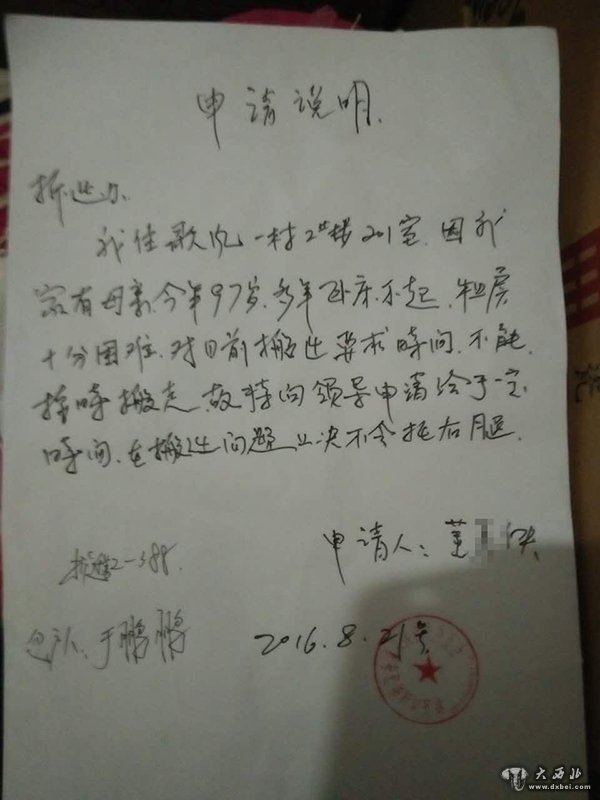 申请说明
拆迁办
我住歌风一村2#楼201室.因我
家有母亲今年97岁.多年卧床不起.租房
十分困难.对目前搬迁要求时间.不能
按时搬走.故特向领导申请给予一定
时间.在搬迁问题上决不会拖后腿.
申请人:董 侠
2-388
于鹏鹏
2016.8.21号
大西北
www.dxbei.com